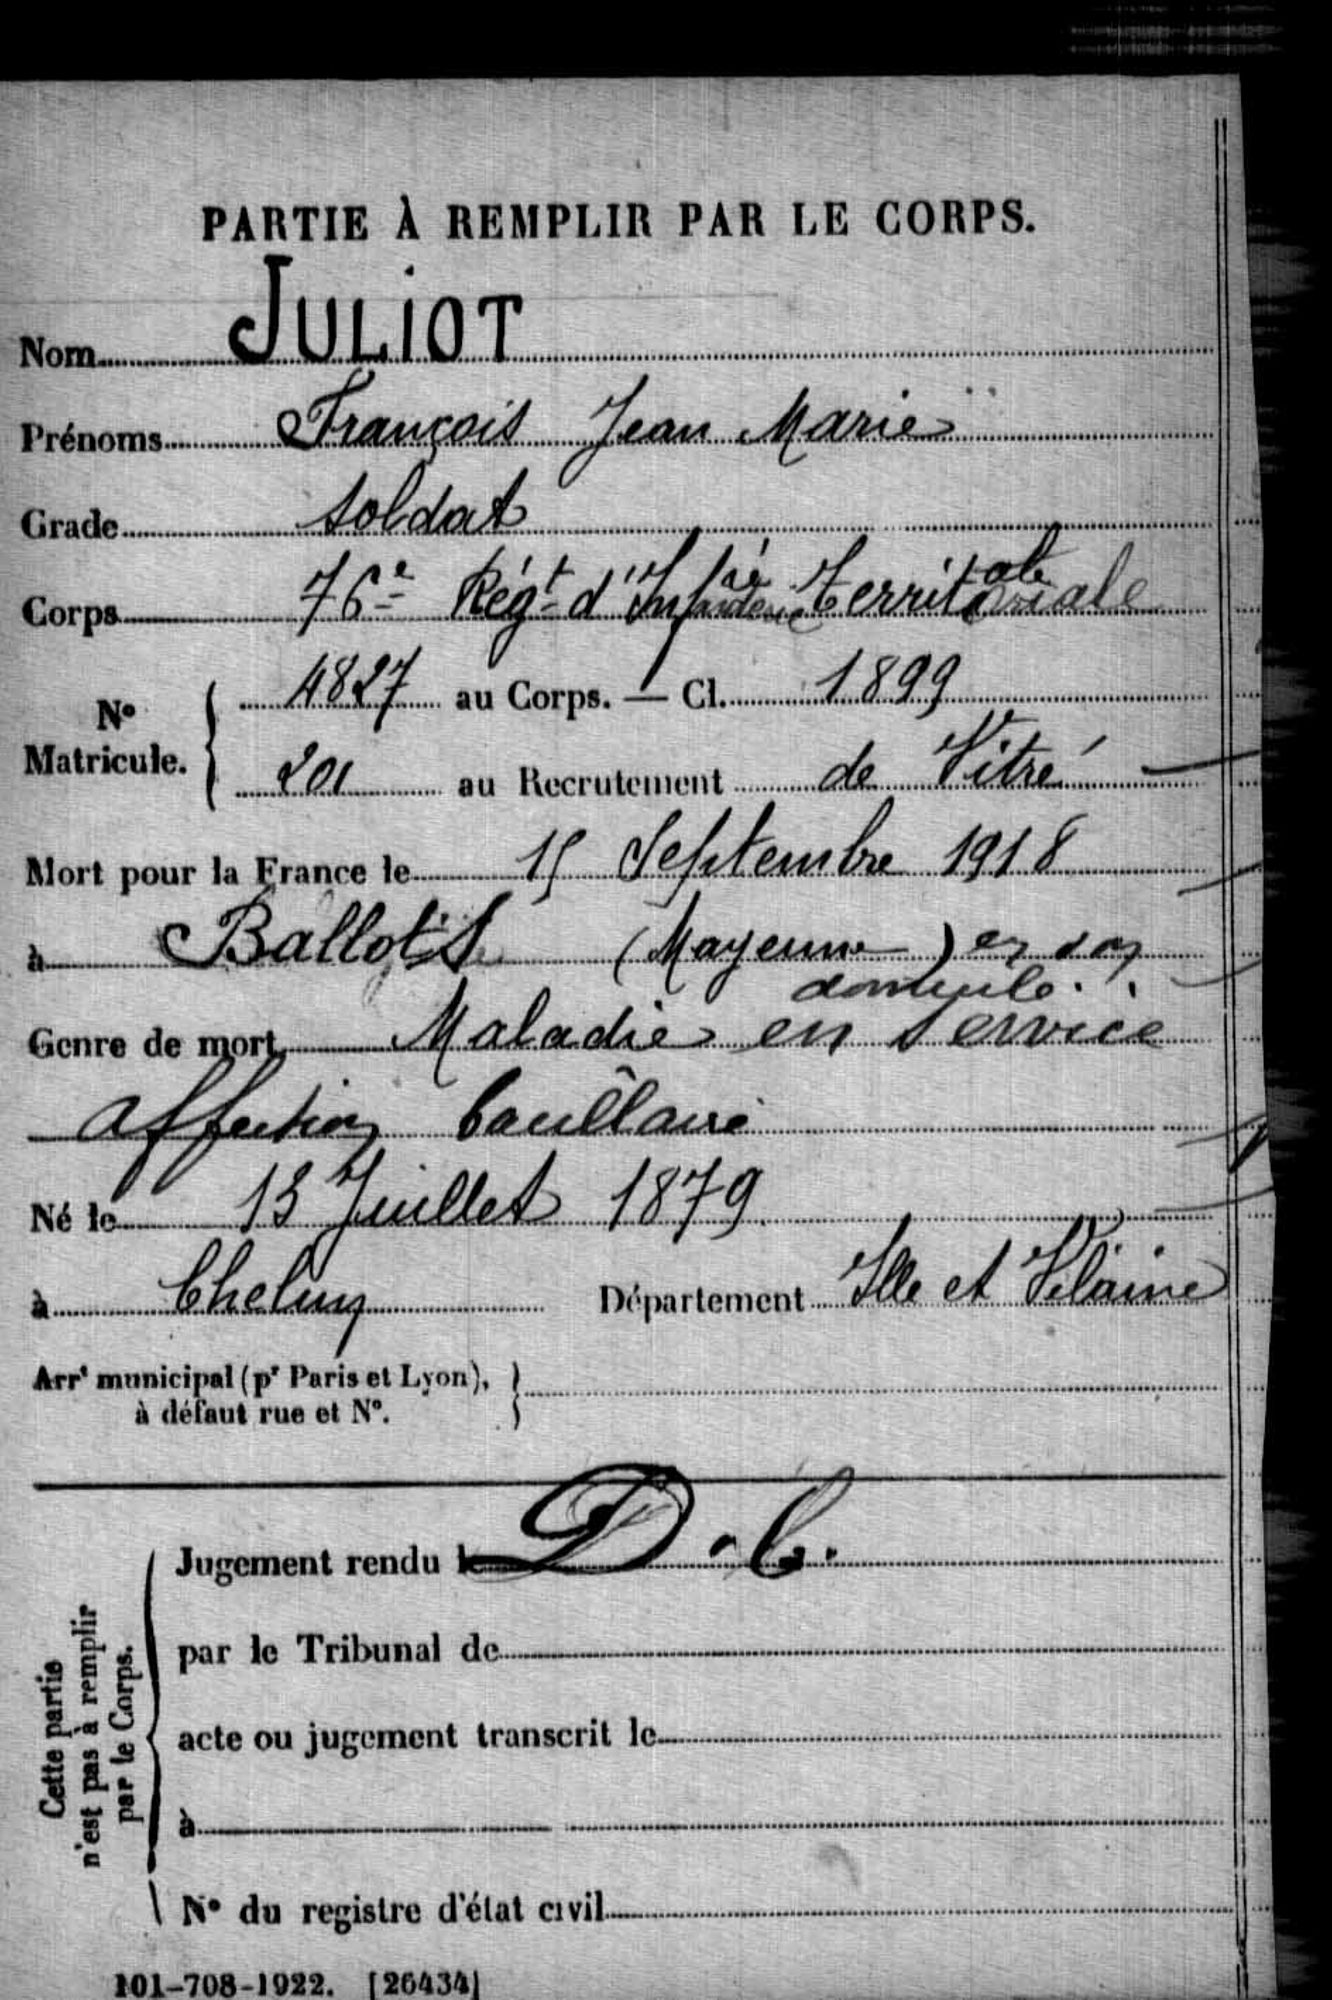 PARTIE À REMPLIR PAR LE CORPS.
Nom JULIOT
Prénoms François Jean Marie
Grade Soldat
Corps 76e Régt d'Infanterie Territoriale
No Matricule. 4827 au Corps. — Cl. 1899
201 au Recrutement de Vitré
Mort pour la France le 15 Septembre 1918
à Ballots (Mayenne) en son
domicile.
Genre de mort Maladie en service
affection bacillaire
Né le 13 Juillet 1879
à Chelun Département Ille et Vilaine
Arrt municipal (pr Paris et Lyon),
à défaut rue et No.
Cette partie
n'est pas à remplir
par le Corps.
Jugement rendu le D.C.
par le Tribunal de
acte ou jugement transcrit le
à
No du registre d'état civil
101-708-1922. [26434]